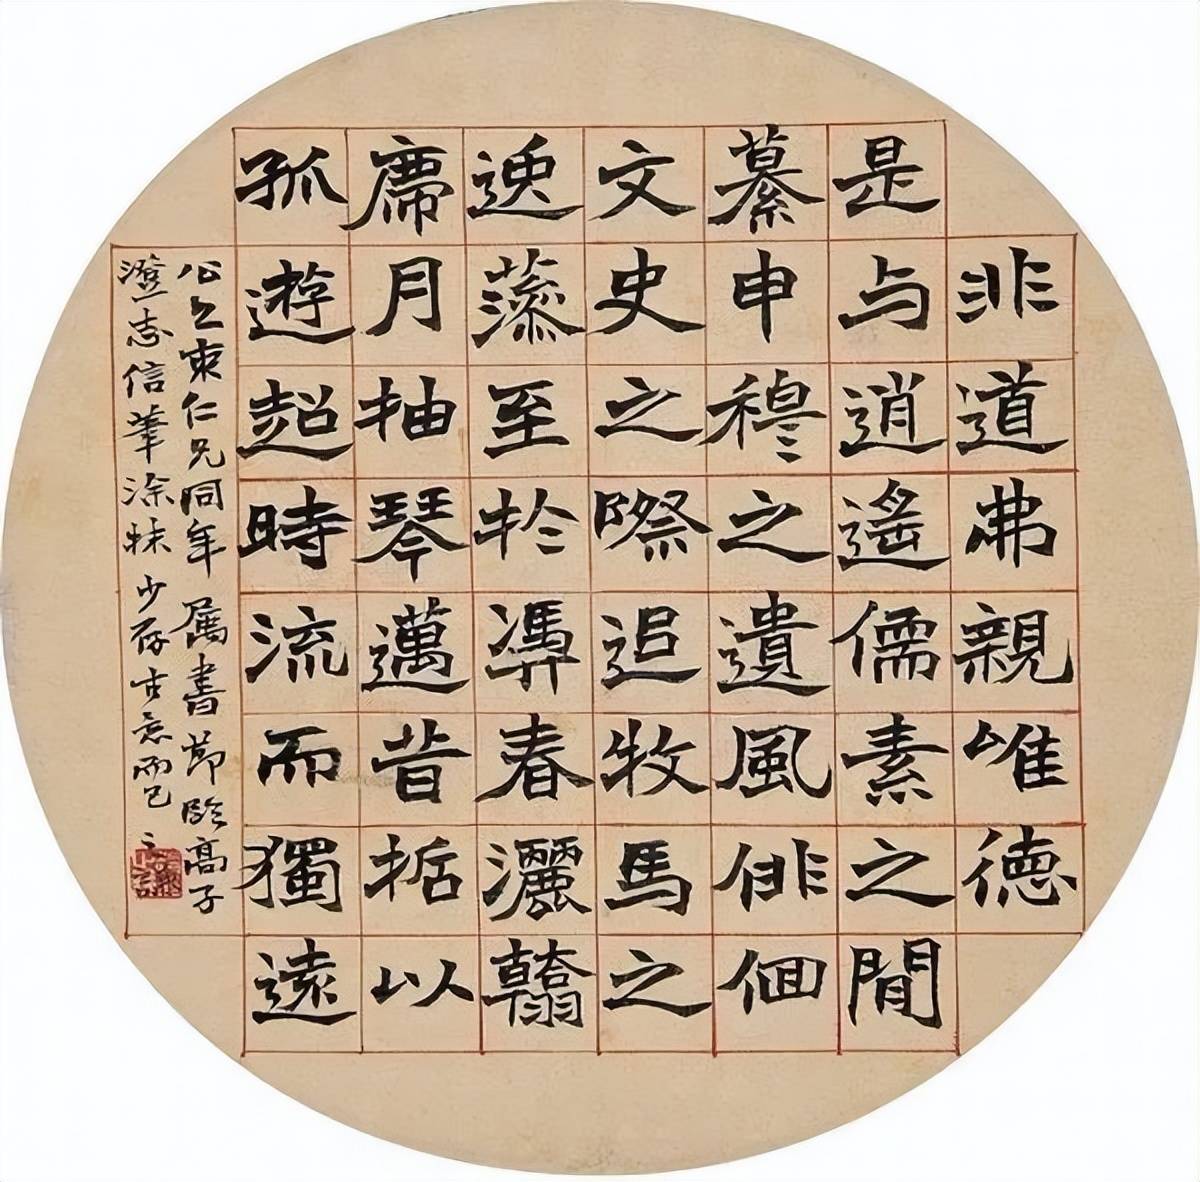 非道弗親唯德
是与逍遙儒素之間
纂申穆之遺風俳徊
文史之際追牧馬之
逸藻至於馮春灑翰
席月抽琴邁昔哲以
孤遊超時流而獨遠
仁兄同年屬書節臨高子
澄志信筆涂抹少存古意而已